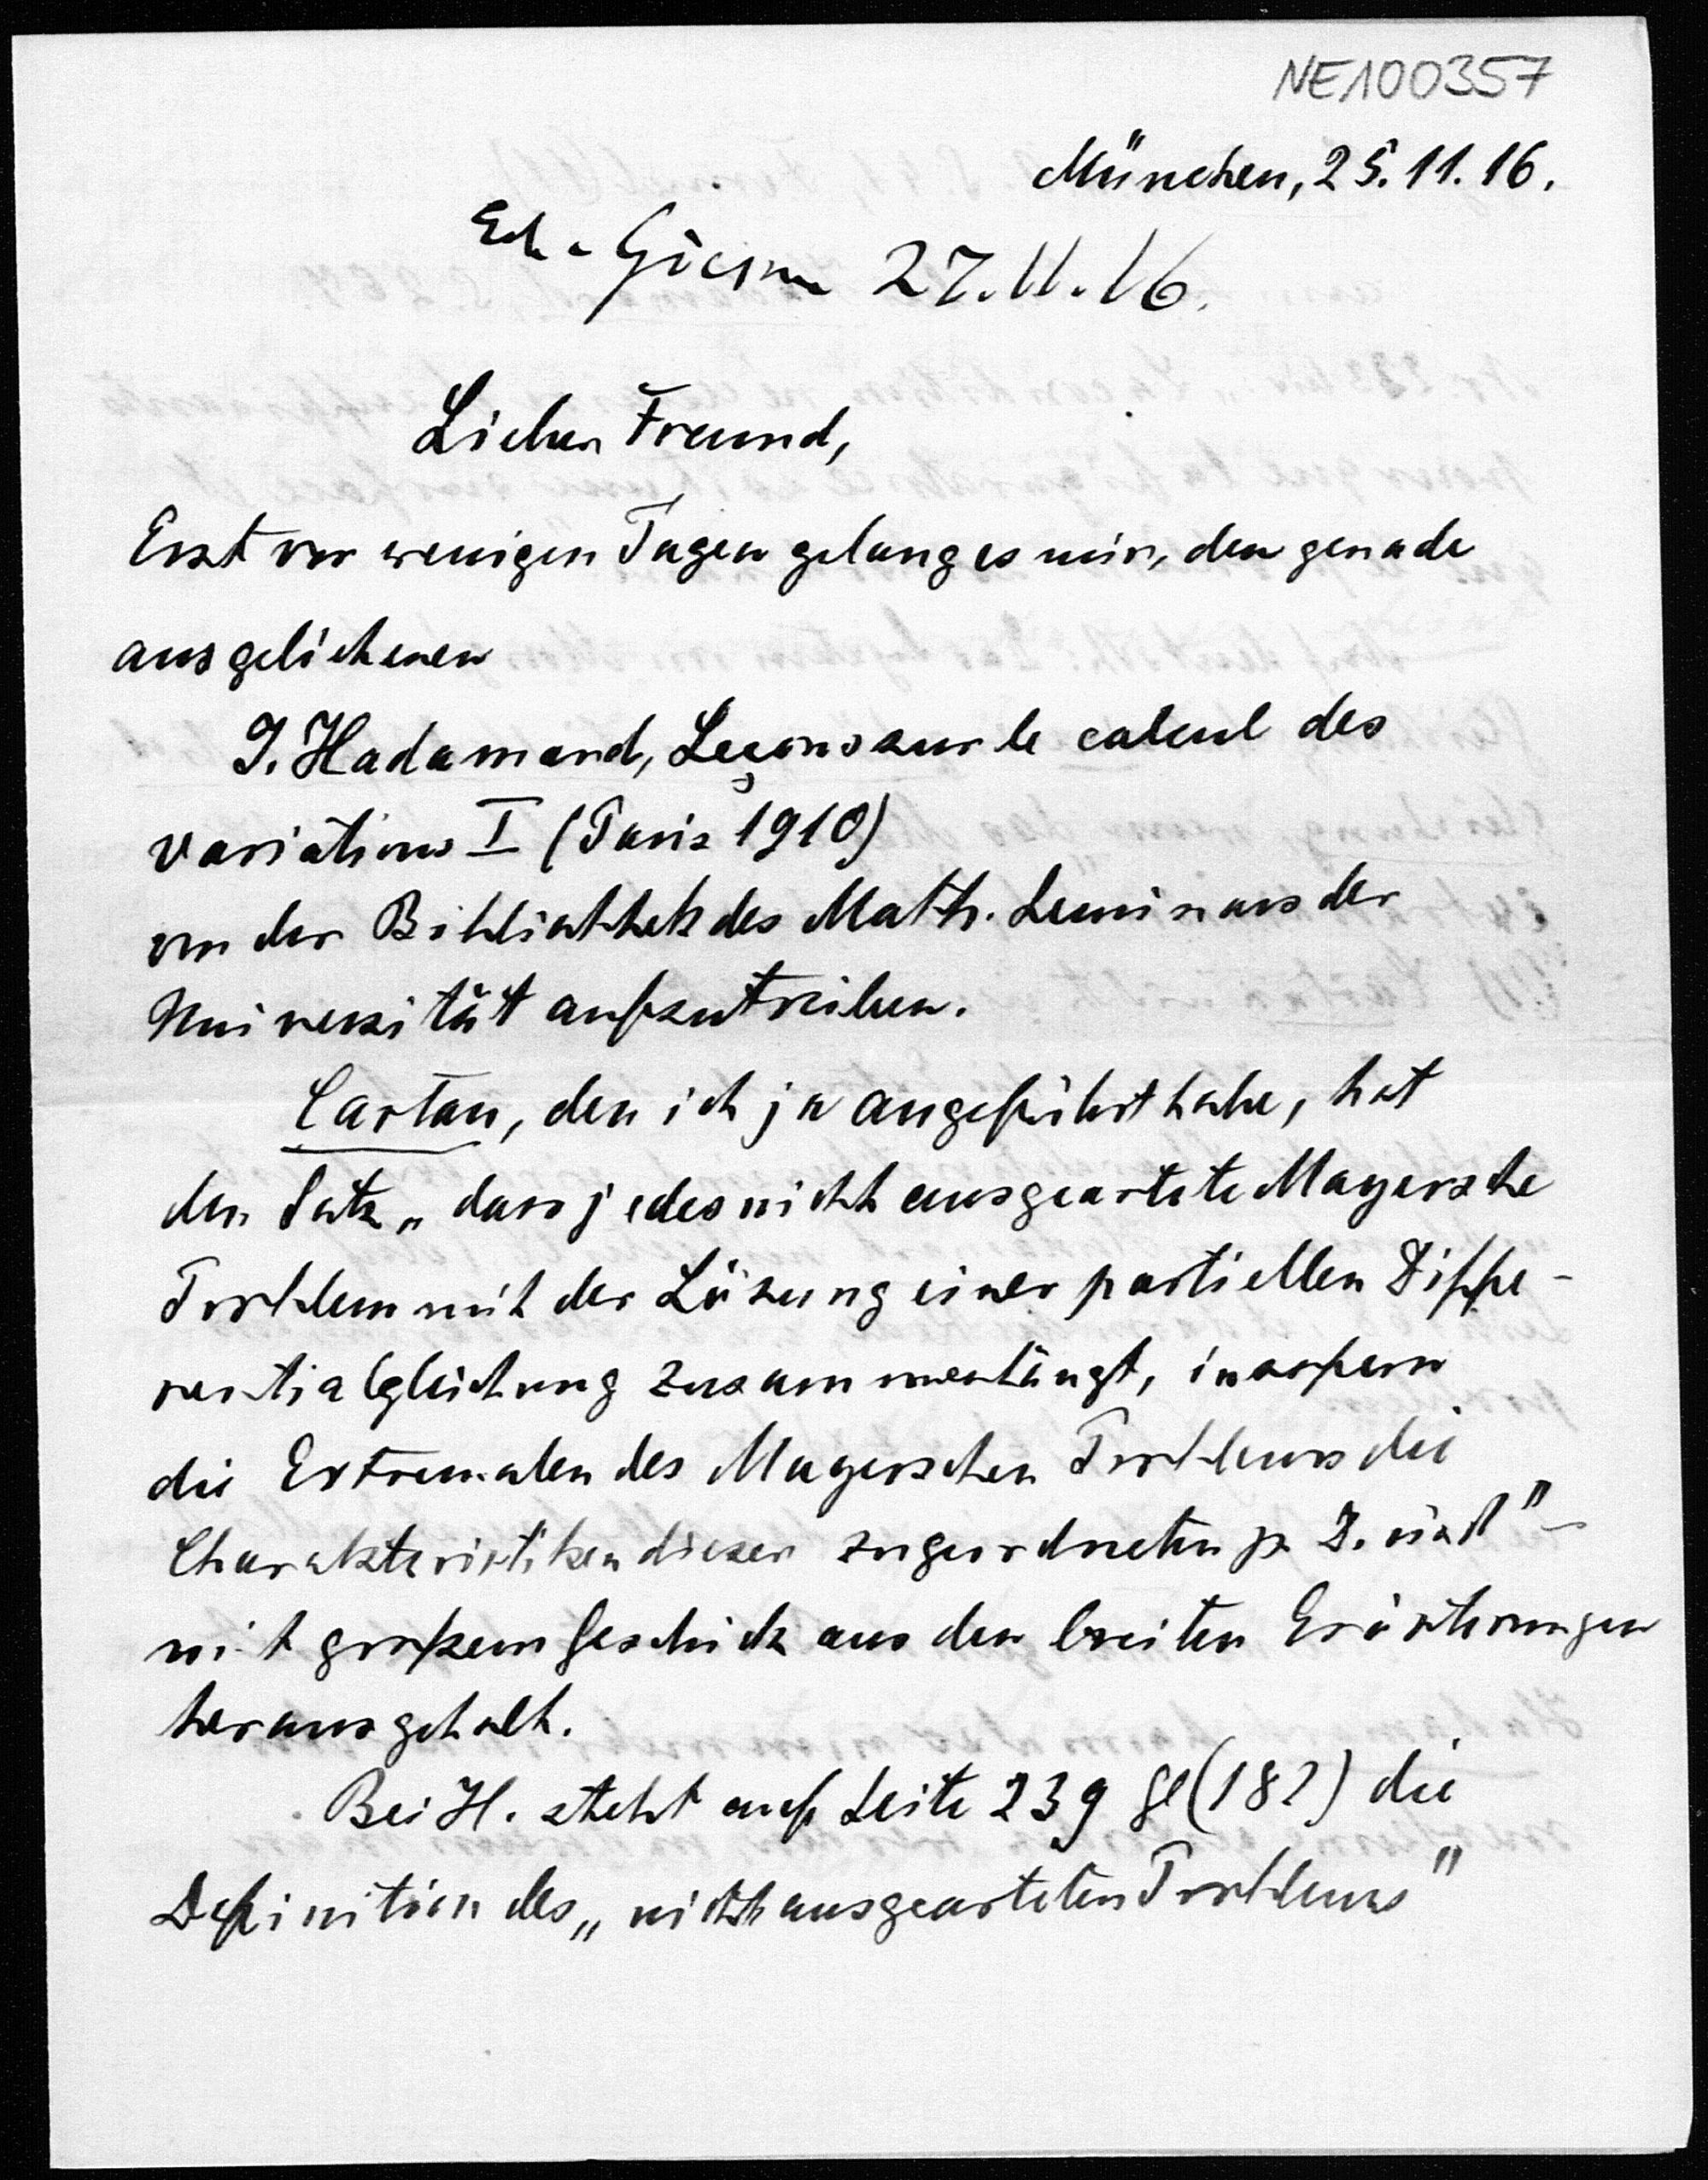 NE100357
München, 25.11.16.
27.11.16.
Lieber Freund,
Erst vor wenigen Tagen gelang es mir, den gerade
ausgeliehenen
J. Hadamard, Leçons sur le calcul des
variations I (Paris 1910)
von der Bibliothek des Math. Seminars der
Universität aufzutreiben.
Cartan, den ich ja angeführt habe, hat
den Satz „dass jedes nicht ausgeartete Mayersche
Problem mit der Lösung einer partiellen Diffe-
rentialgleichung zusammenhängt, insofern
die Extremalen des Mayerschen Problems die
Charakteristiken dieser zugeordneten p. D. sind" –
mit großem Geschick aus den breiten Erörterungen
herausgeholt.
Bei H. steht auf Seite 239 Gl (182) die
Definition des „nicht ausgearteten Problems"